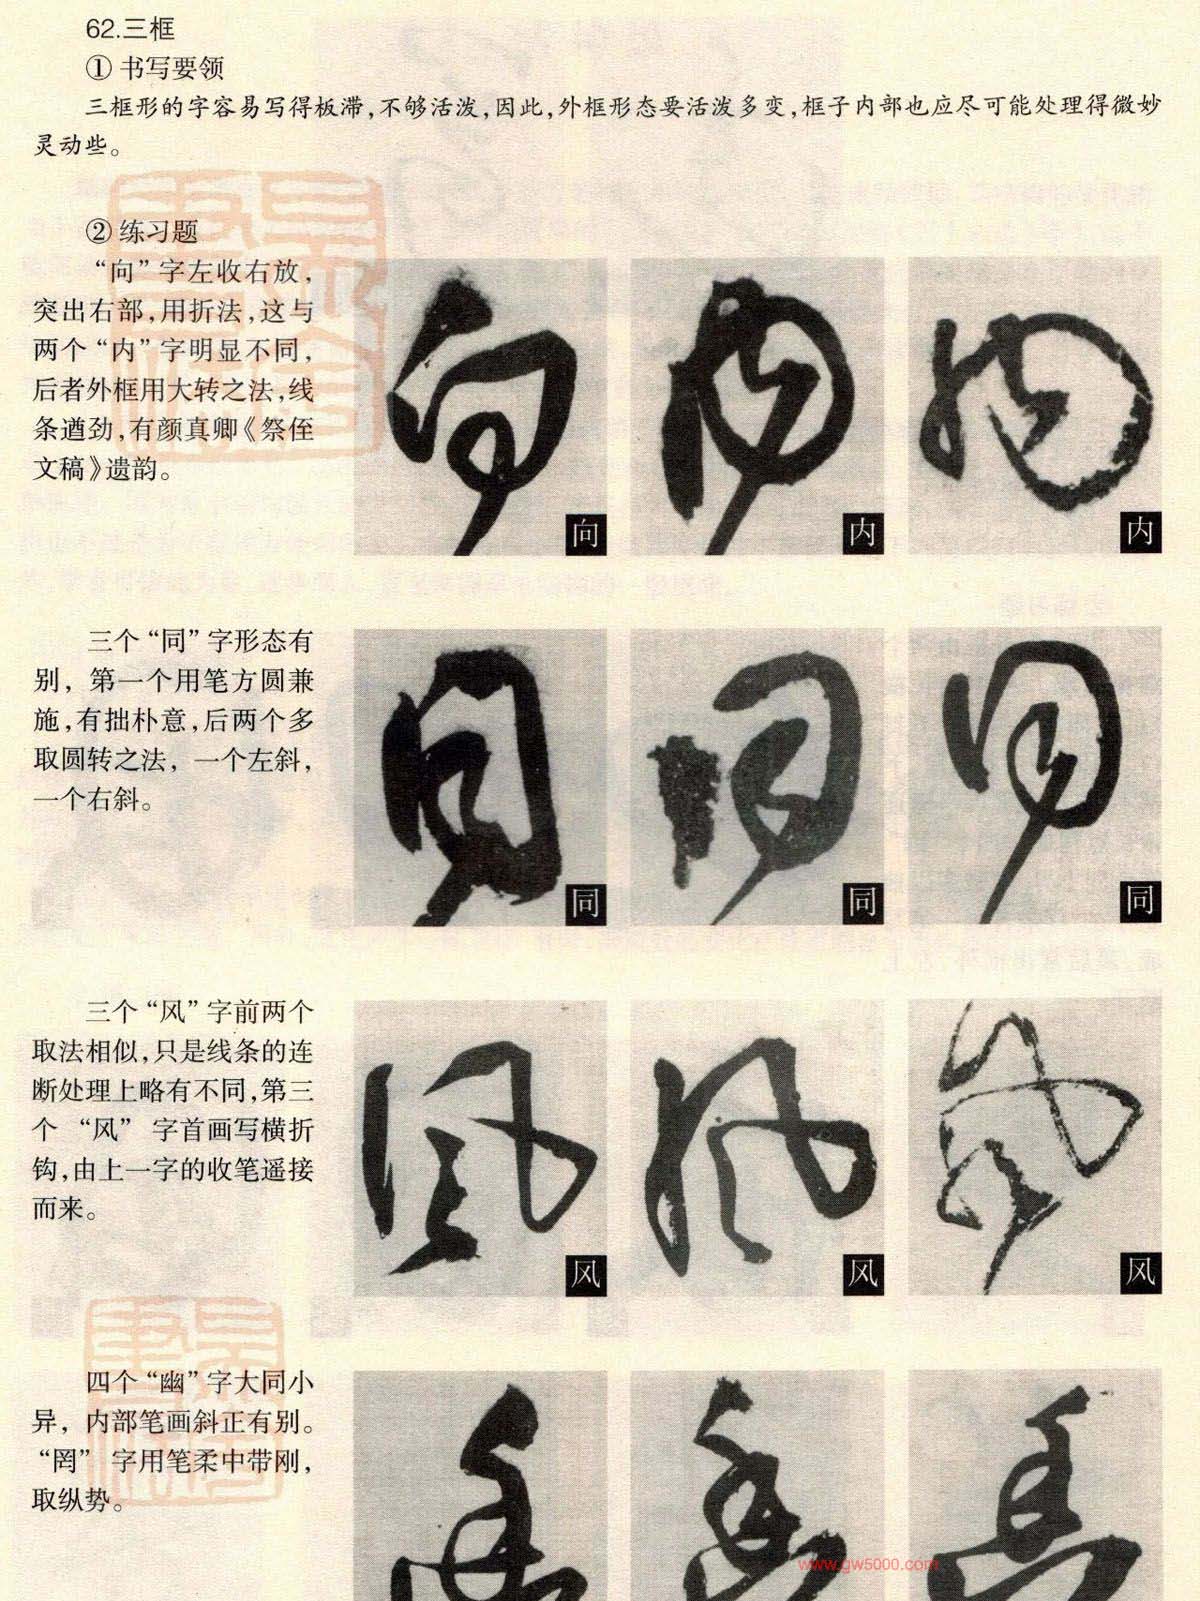 62.三框
① 书写要领
三框形的字容易写得板滞,不够活泼,因此,外框形态要活泼多变,框子内部也应尽可能处理得微妙
灵动些。
② 练习题
“向”字左收右放,
突出右部,用折法,这与
两个“内”字明显不同,
后者外框用大转之法,线
条遒劲,有颜真卿《祭侄
文稿》遗韵。
向
内
内
三个“同”字形态有
别,第一个用笔方圆兼
施,有拙朴意,后两个多
取圆转之法,一个左斜,
一个右斜。
同
同
同
三个“风”字前两个
取法相似,只是线条的连
断处理上略有不同,第三
个“风”字首画写横折
钩,由上一字的收笔遥接
而来。
风
风
风
四个“幽”字大同小
异,内部笔画斜正有别。
“罔”字用笔柔中带刚,
取纵势。
www.gw5000.com